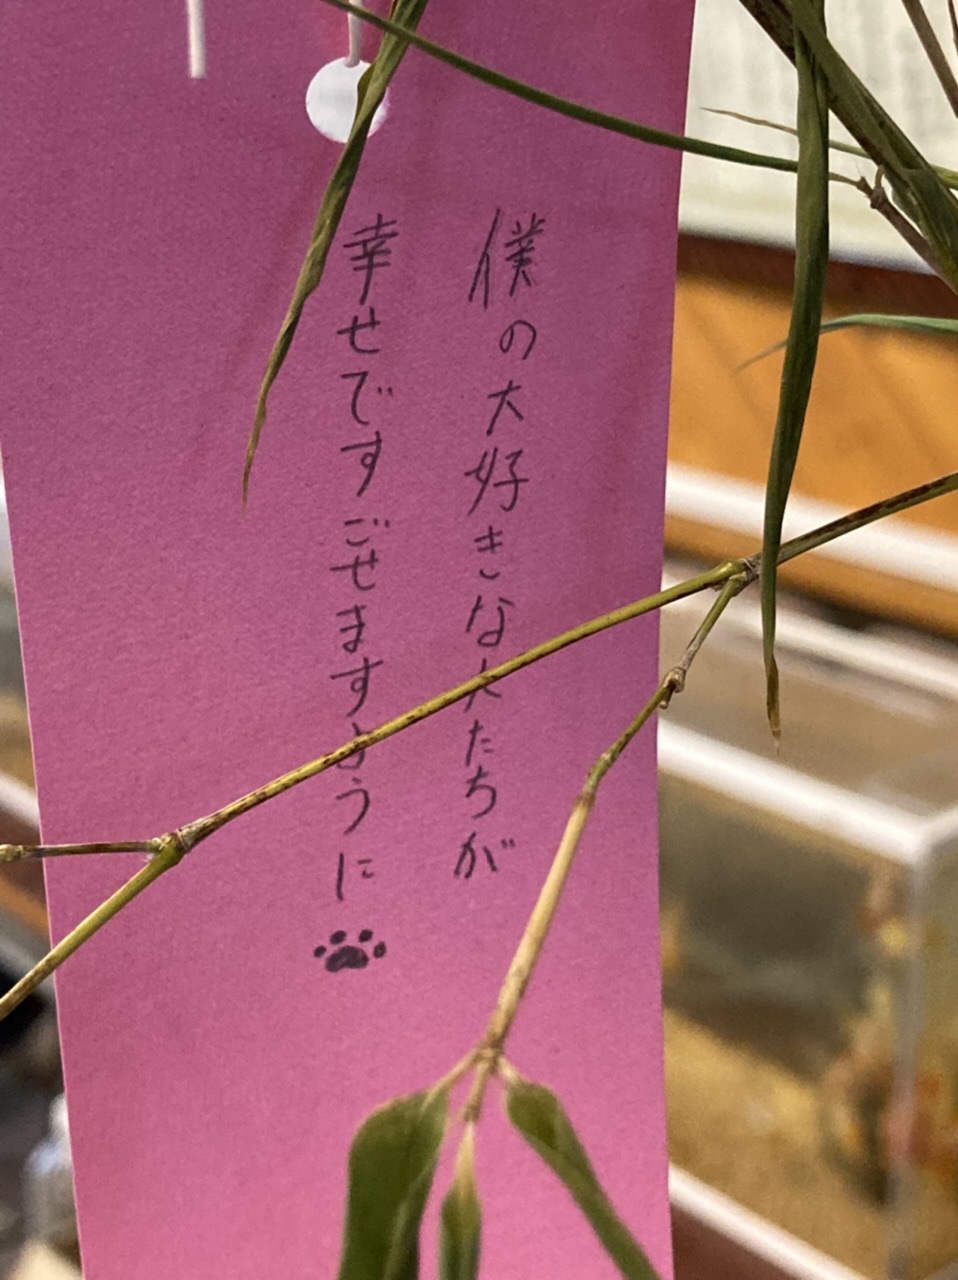 僕の大好きな人たちが
幸せですごせますように